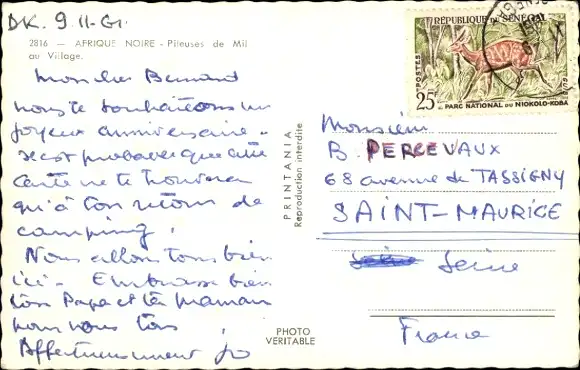 DK. 9.11.61.
2816 — AFRIQUE NOIRE - Pileuses de Mil
au Village.
Mon cher Bernard
nous te souhaitons un
joyeux anniversaire.
Il est probable que cette
carte ne te trouvera
qu'à ton retour de
camping.
Nous allons tous bien
ici. Embrasse bien
ton Papa et ta maman
pour nous tous
Affectueusement
PRINTANIA
Reproduction interdite
PHOTO
VERITABLE
RÉPUBLIQUE DU SÉNÉGAL
POSTES
25F
PARC NATIONAL DU NIOKOLO-KOBA
Monsieur
B. PERCEVAUX
68 avenue de TASSIGNY
SAINT-MAURICE
Seine
France